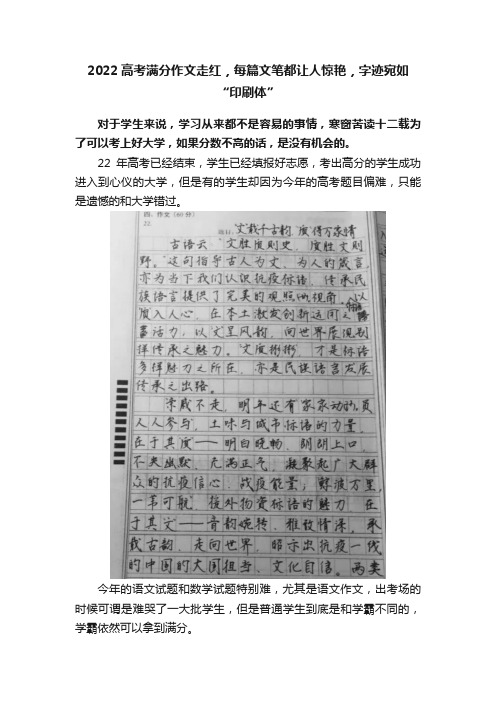 2022高考满分作文走红，每篇文笔都让人惊艳，字迹宛如
“印刷体”
对于学生来说，学习从来都不是容易的事情，寒窗苦读十二载为
了可以考上好大学，如果分数不高的话，是没有机会的。
22 年高考已经结束，学生已经填报好志愿，考出高分的学生成功
进入到心仪的大学，但是有的学生却因为今年的高考题目偏难，只能
是遗憾的和大学错过。
四、作文（60分）
22.
题目：文载千古韵 质得万家情
古语云：“文胜质则史，质胜文则
野。”这句指乎古人为文、为人的箴言，
亦为当下我们认识抗疫标语，传承民
族语言提供了完美的观照视角，以
质入人心，在本土激发创新运用之
蓄活力；以文呈风韵，向世界展现别
样传承之魅力。“文质彬彬”才是标语
多样魅力之所在，亦是民族语言发展
传承之出路。
亲戚不走，明年还有家家动的，员
人人参与，土味与城市标语的力量，
在于其质——明白晓畅，朗朗上口，
不失幽默，充满正气，凝聚起广大群
众的抗疫信心、战疫能量；鲸波万里，
一苇可航，援外物资标语的魅力，在
于其文——音韵婉转，雅致情深，承
载古韵，走向世界，昭示出抗疫一线
的中国的大国担当、文化自信。两类
今年的语文试题和数学试题特别难，尤其是语文作文，出考场的
时候可谓是难哭了一大批学生，但是普通学生到底是和学霸不同的，
学霸依然可以拿到满分。